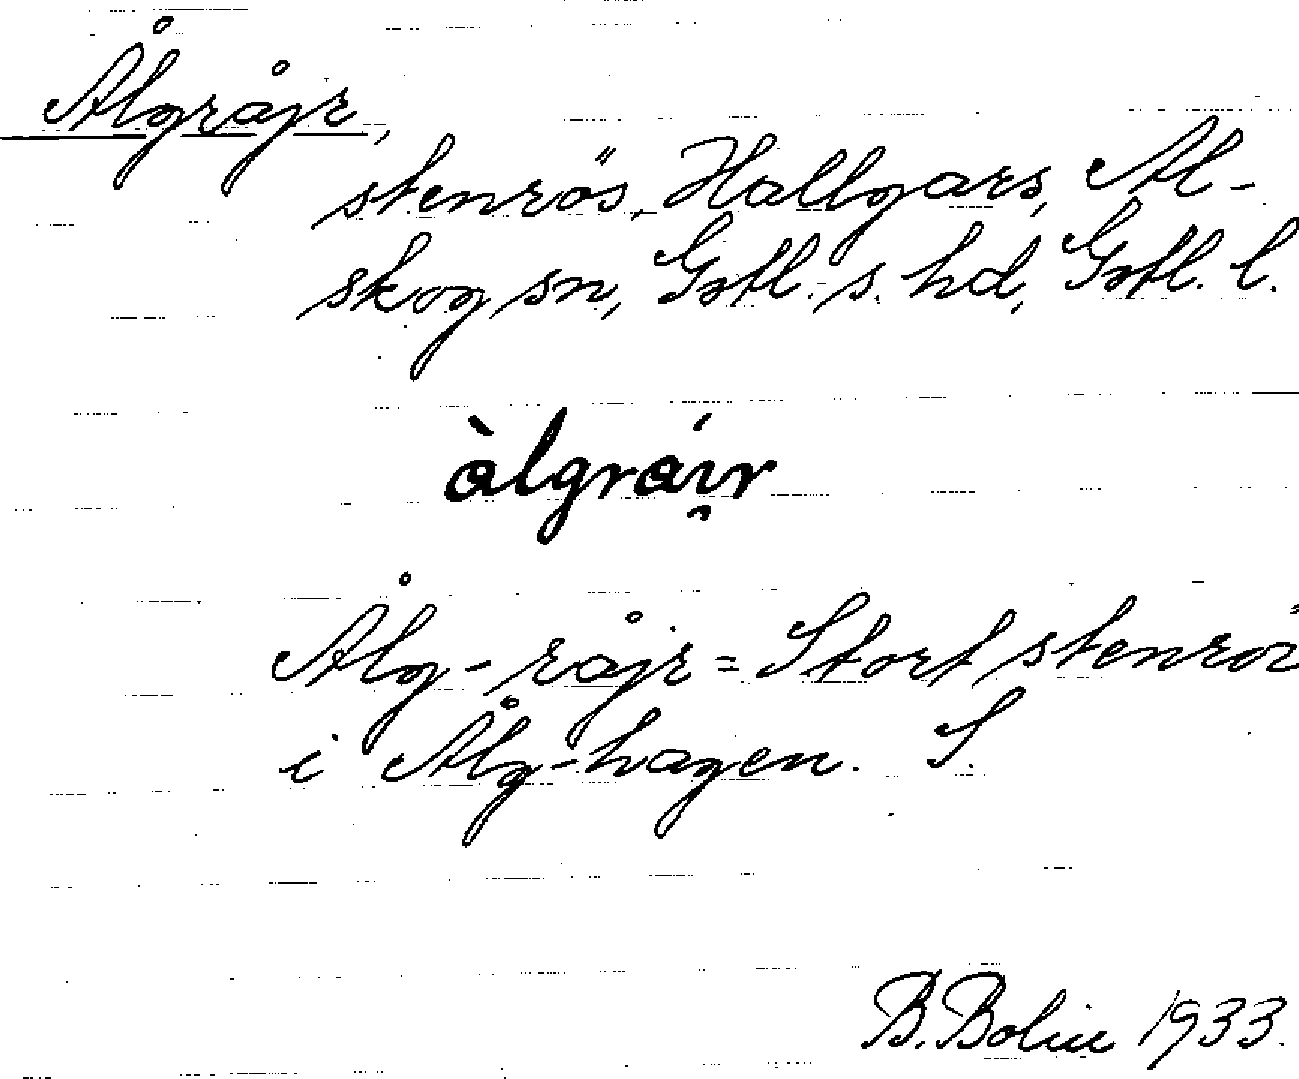 Ålgråjr,
stenrös, Hallgars, Al-
skog sn, Gotl. s. hd, Gotl. l.
àlgrái̯r
Ålg-råjr = Stort stenrör
i Ålg-hagen. S.
B. Bolin 1933.